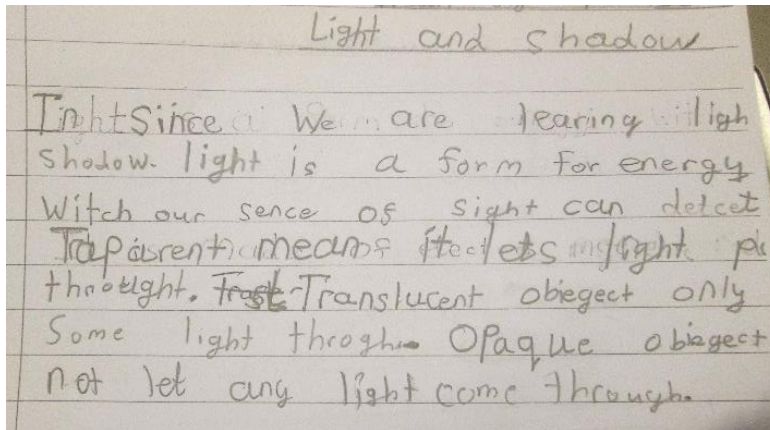 Light and shadow
We are learing ligh
shadow. light is a form for energy
Witch our sence of sight can detcet
means lets light
throught. Translucent obiegect only
Some light throgh. Opaque obiegect
not let any light come through.